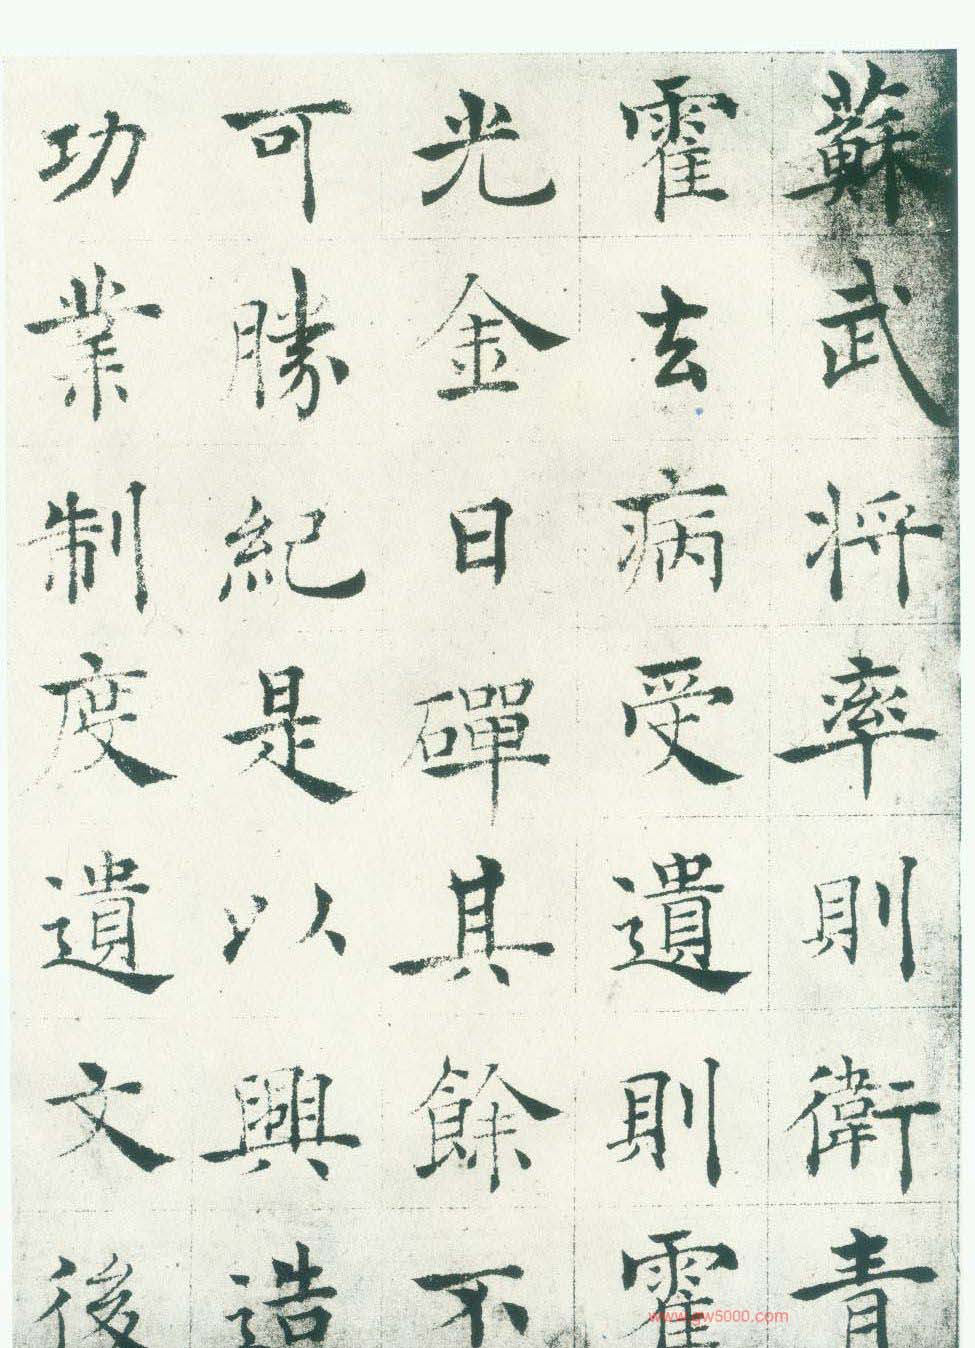 蘇武將率則衛青
霍去病受遺則霍
光金日磾其餘不
可勝紀是以興造
功業制度遺文後
www.gw5000.com